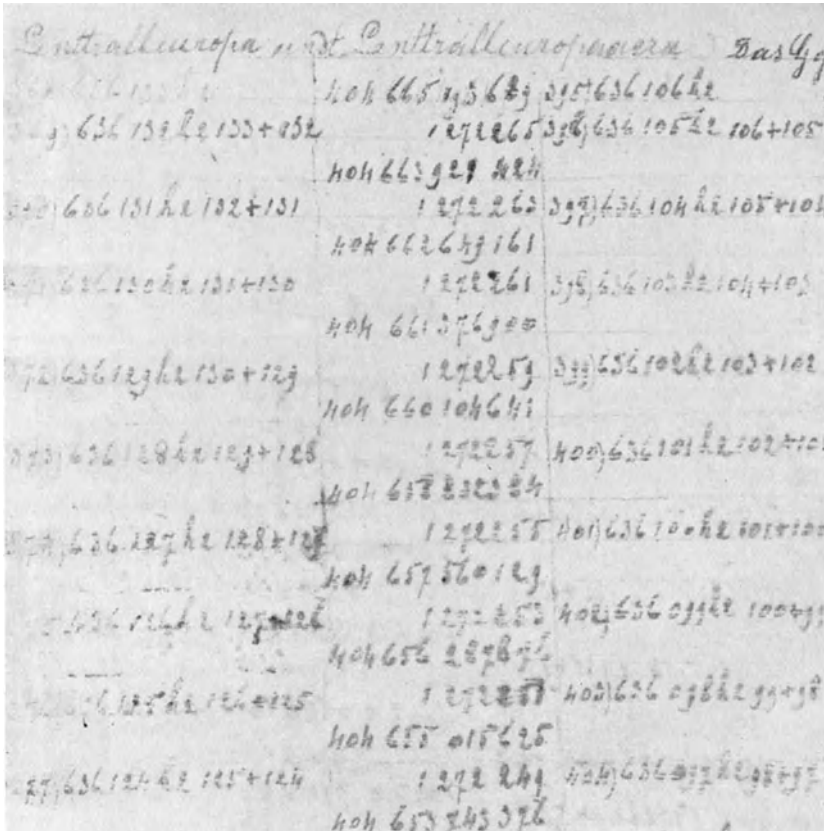 Centtralleuropa undt Centtralleuropaaern Das
404 665 193 689 395) 636 106 h2
636 132 h2 133+132 1 272 265 396) 636 105 h2 106+105
404 663 921 424
636 131 h2 132+131 1 272 263 397) 636 104 h2 105+104
404 662 649 161
636 130 h2 131+130 1 272 261 398) 636 103 h2 104+103
404 661 376 900
72) 636 129 h2 130+129 1 272 259 399) 636 102 h2 103+102
404 660 104 641
373) 636 128 h2 129+128 1 272 257 400) 636 101 h2 102+101
404 658 832 384
374) 636 127 h2 128+127 1 272 255 401) 636 100 h2 101+100
404 657 560 129
636 126 h2 127+126 1 272 253 402) 636 099 h2 100+99
404 656 287 876
636 125 h2 126+125 1 272 251 403) 636 098 h2 99+98
404 655 015 625
77) 636 124 h2 125+124 1 272 249 404) 636 097 h2 98+97
404 653 743 376